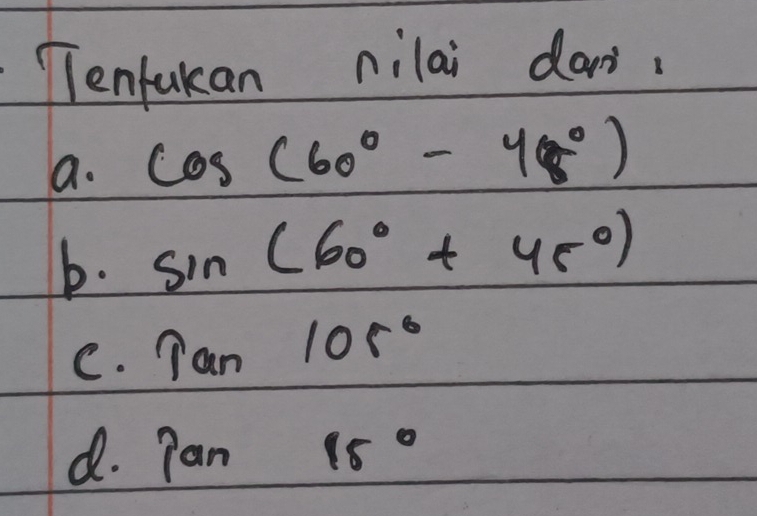 Tentukan nilai dari :
a. Cos (60° - 45°)
b. Sin (60° + 45°)
c. Tan 105°
d. Tan 15°